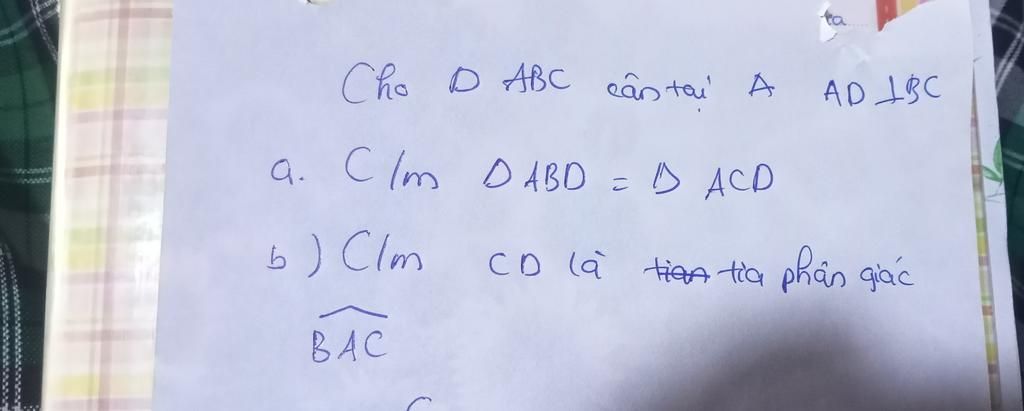 ta
Cho Δ ABC cân tại A AD ⊥ BC
a. C/m Δ ABD = Δ ACD
b) C/m CD là tia phân giác
BAC